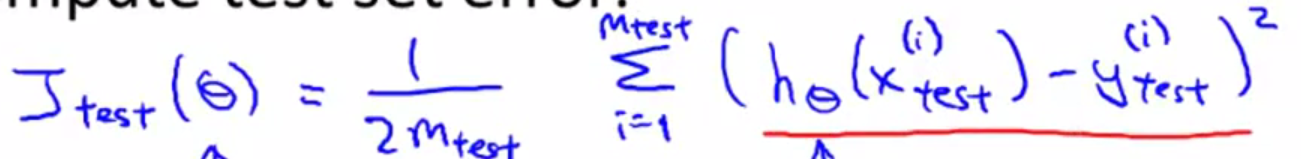 compute test set error:
J_test(θ) = 1/(2m_test) Σ_{i=1}^{m_test} (h_θ(x_test^{(i)}) - y_test^{(i)})^2